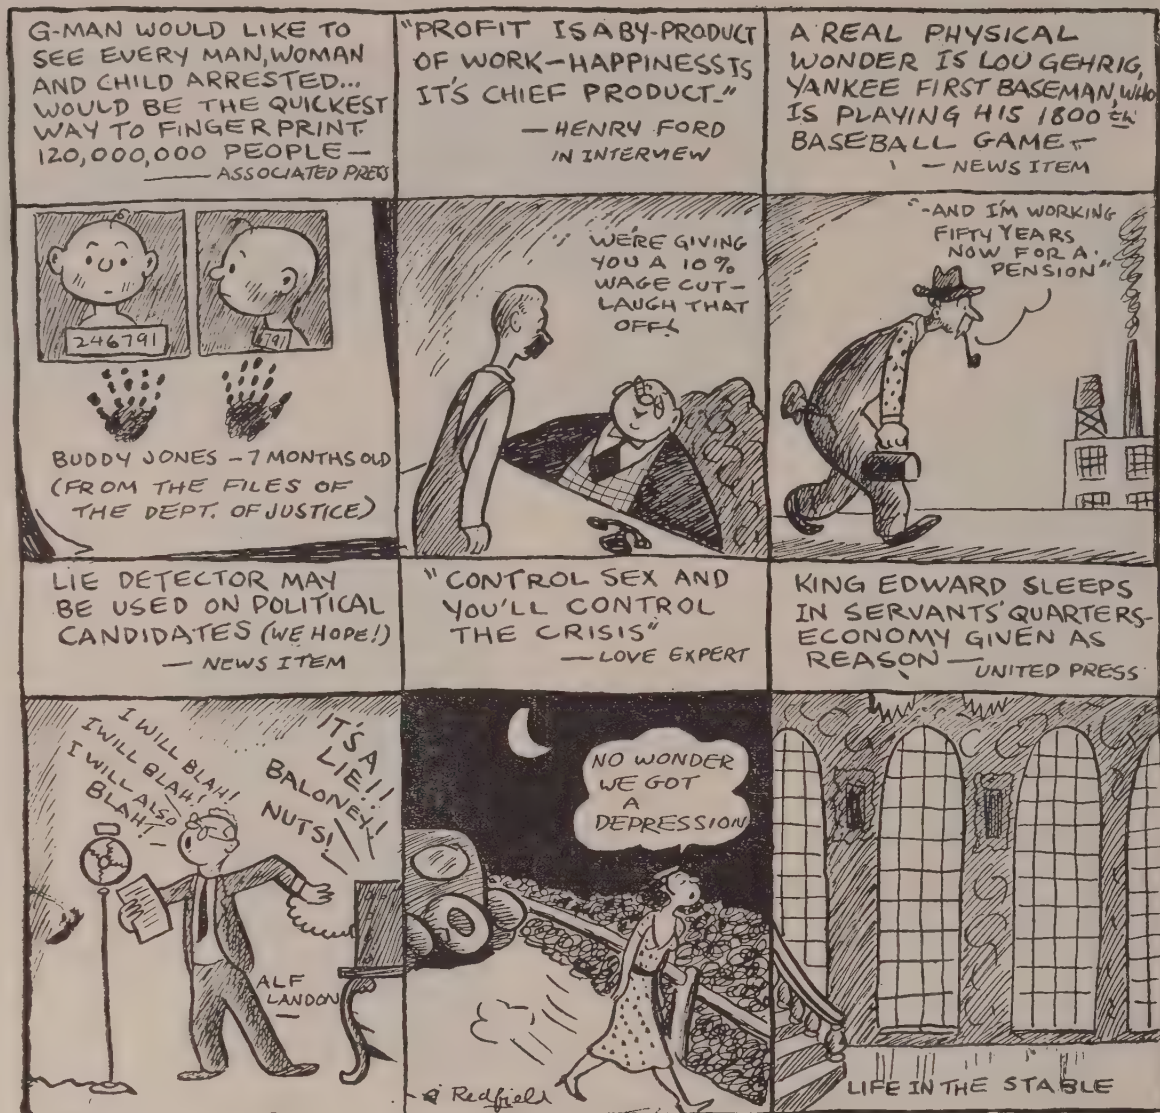 G-MAN WOULD LIKE TO
SEE EVERY MAN, WOMAN
AND CHILD ARRESTED...
WOULD BE THE QUICKEST
WAY TO FINGER PRINT
120,000,000 PEOPLE—
—ASSOCIATED PRESS
246791
791
BUDDY JONES - 7 MONTHS OLD
(FROM THE FILES OF
THE DEPT. OF JUSTICE)
"PROFIT IS A BY-PRODUCT
OF WORK—HAPPINESS IS
IT'S CHIEF PRODUCT."
—HENRY FORD
IN INTERVIEW
WE'RE GIVING
YOU A 10%
WAGE CUT—
LAUGH THAT
OFF!
A REAL PHYSICAL
WONDER IS LOU GEHRIG,
YANKEE FIRST BASEMAN, WHO
IS PLAYING HIS 1800th
BASEBALL GAME—
—NEWS ITEM
"-AND I'M WORKING
FIFTY YEARS
NOW FOR A
PENSION"
LIE DETECTOR MAY
BE USED ON POLITICAL
CANDIDATES (WE HOPE!)
—NEWS ITEM
I WILL BLAH!
I WILL BLAH!
I WILL ALSO
BLAH!
IT'S A
LIE!!
BALONEY!
NUTS!
ALF
LANDON
"CONTROL SEX AND
YOU'LL CONTROL
THE CRISIS"
—LOVE EXPERT
NO WONDER
WE GOT
A
DEPRESSION
Redfield
KING EDWARD SLEEPS
IN SERVANTS' QUARTERS-
ECONOMY GIVEN AS
REASON—
UNITED PRESS
LIFE IN THE STABLE